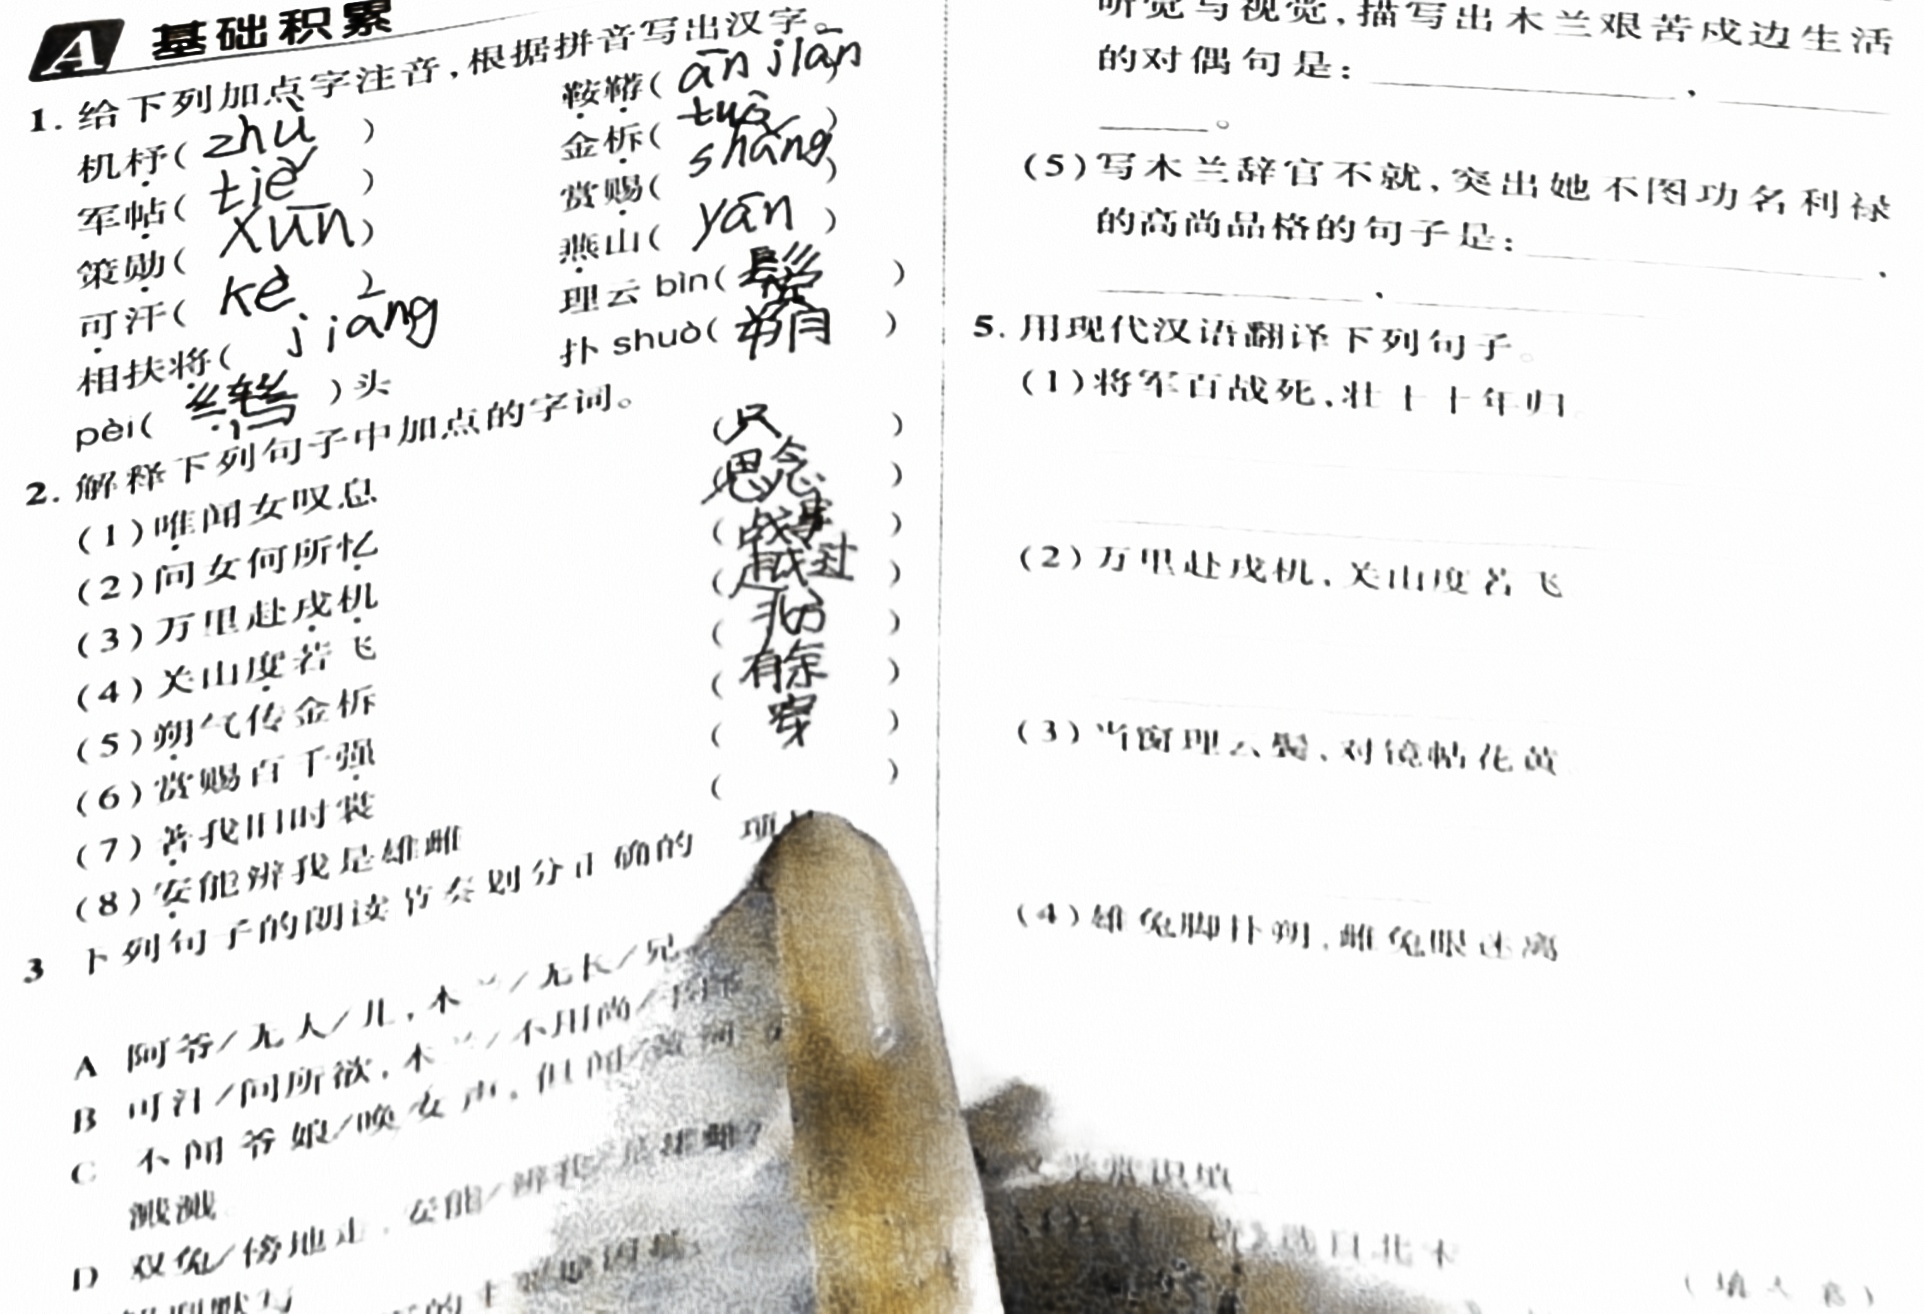 A 基础积累
1. 给下列加点字注音,根据拼音写出汉字。
机杼( zhù ) 鞍鞯( ān jiān )
军帖( tiě ) 金柝( tuò )
策勋( xūn ) 赏赐( shǎng )
可汗( kè ) 燕山( yān )
相扶将( jiāng ) 理云 bìn( 鬓 )
pèi( 辔 )头 扑 shuò( 朔 )
2. 解释下列句子中加点的字词。
(1)唯闻女叹息 ( 只 )
(2)问女何所忆 ( 思念 )
(3)万里赴戎机 ( 战事 )
(4)关山度若飞 ( 越过 )
(5)朔气传金柝 (
(6)赏赐百千强 ( 有余 )
(7)著我旧时裳 ( 穿 )
(8)安能辨我是雄雌 ( )
3 下列句子的朗读节奏划分正确的 项
A 阿爷/无大/儿,木兰/无长/兄
B 可汗/问所欲,木兰/不用尚/书郎
C 不闻爷娘/唤女声,但闻/黄河
溅溅
D 双兔/傍地走,安能/辨我/是雄雌?
听觉与视觉,描写出木兰艰苦戍边生活
的对偶句是: ,
。
(5)写木兰辞官不就,突出她不图功名利禄
的高尚品格的句子是: ,
,
5. 用现代汉语翻译下列句子。
(1)将军百战死,壮士十年归
(2)万里赴戎机,关山度若飞
(3)当窗理云鬓,对镜帖花黄
(4)雄兔脚扑朔,雌兔眼迷离